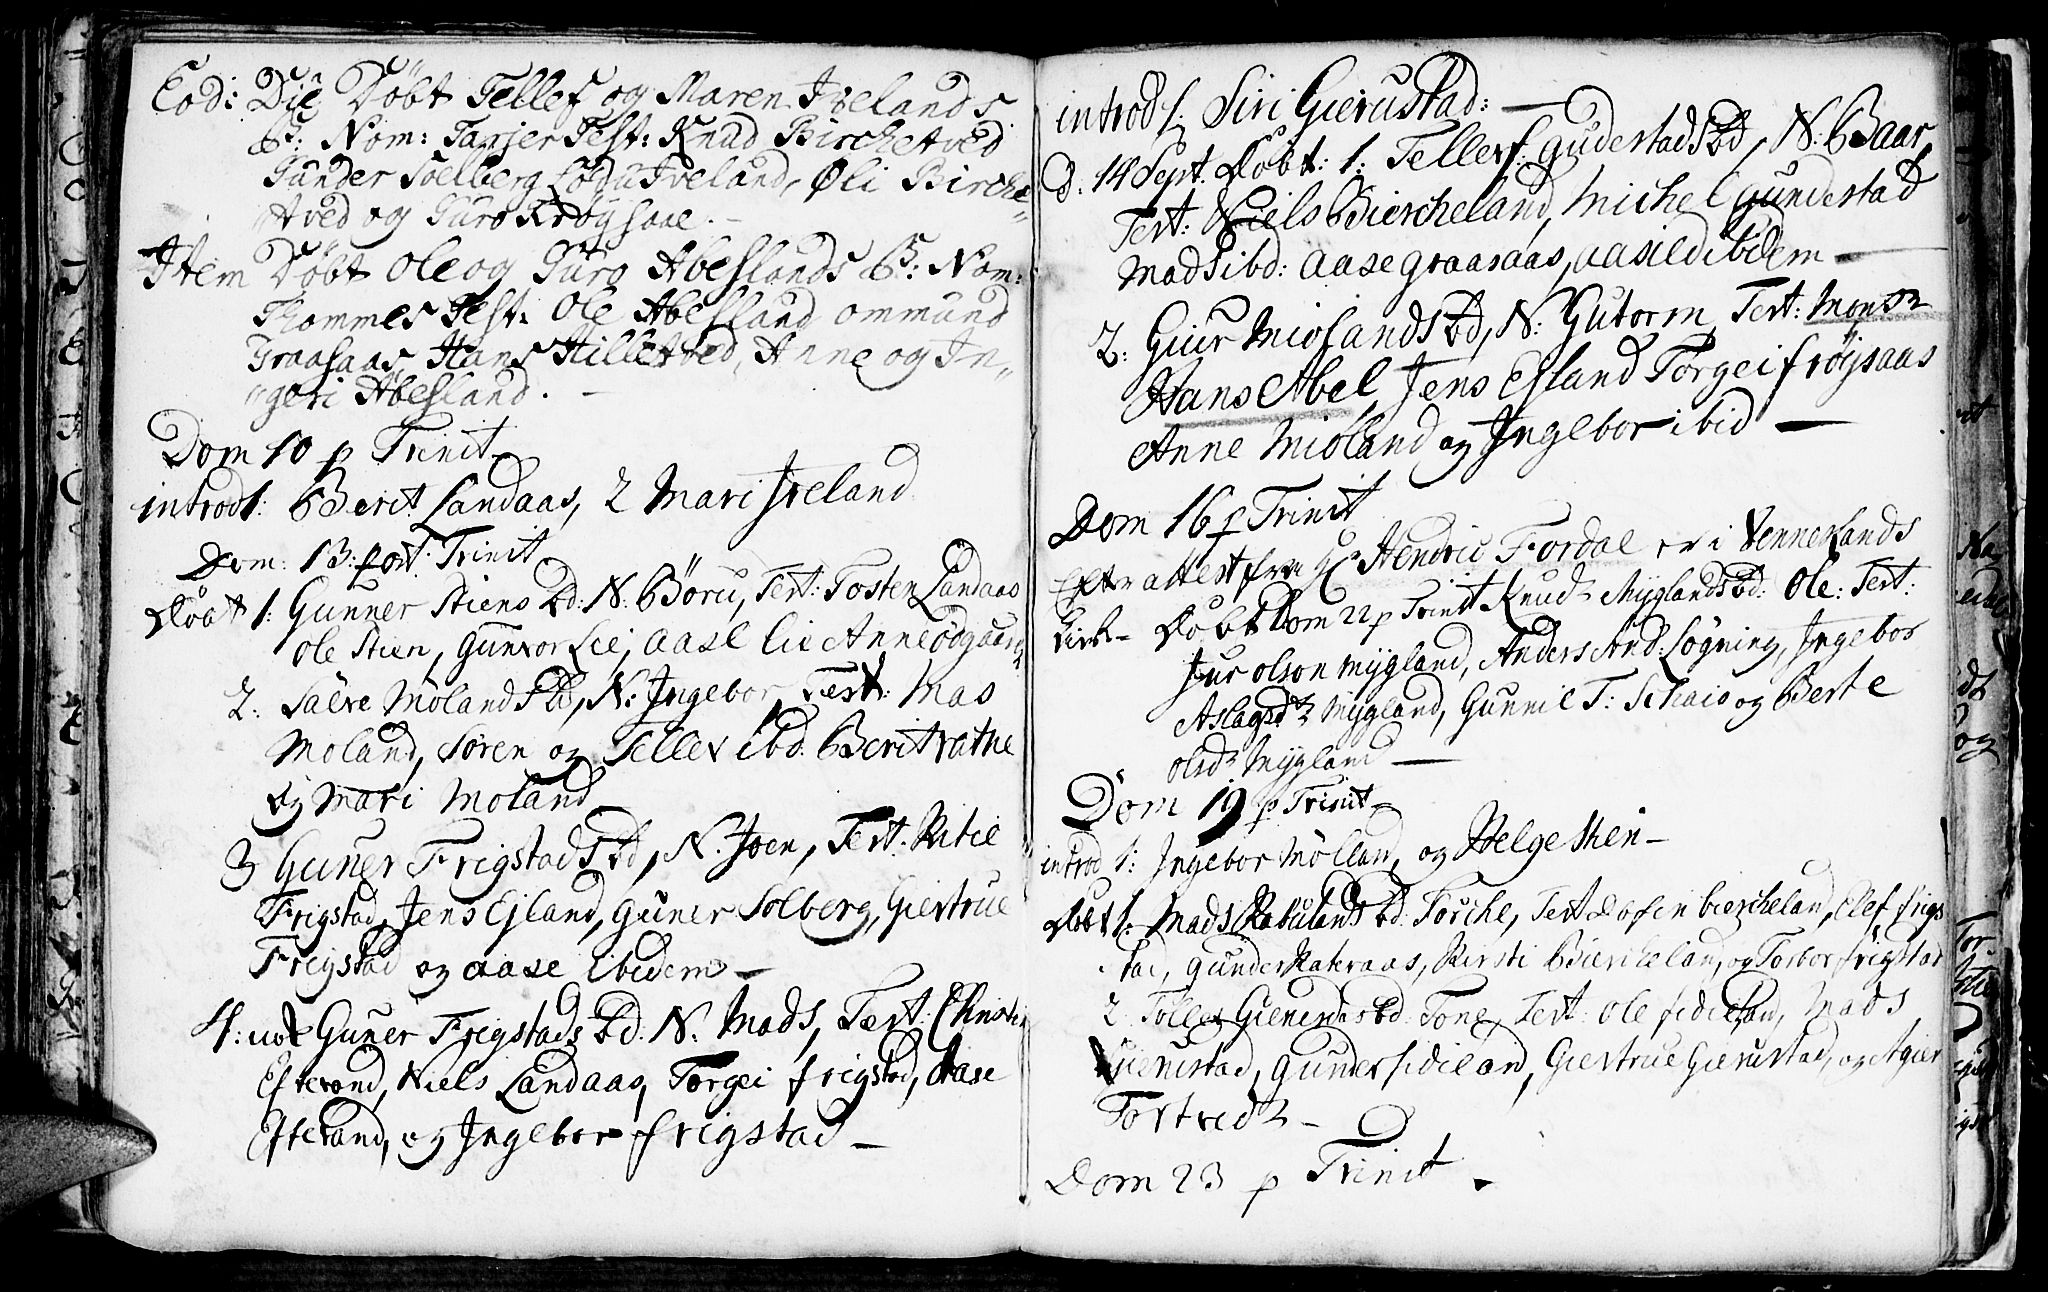 Eod: Die Døbt Tellef og Maren Ivelands
B: Nom: Tarjer Test: Knud Birchetved
Gunder Soelberg Iveland, Øli Birche„
tved og Guro Krøysaae. –
Item Døbt Ole og Guro Abeslands B: Nom:
Thommes Test: Ole Abesland ommund
Graasaas, Hans Hilletved, Anne og In„
„geri Abesland. –
Dom 10 p Trinit
introd 1: Berit Landaas, 2 Mari Iveland
Dom: 13: post Trinit
Døbt 1: Gunner Stiens Bd: N: Böru, Test: Tosten Landaas
Ole Stien, Gunvor Lie, Aase Lie Anne
2: Salve Molands Bd, N: Ingebor, Test: Mas
Moland, Søren og Tellev ibd. Berit
og Mari Moland
3 Guner Frigstads Bd, N: Joen, Test: Kitil
Frigstad, Jens Ejland, Guner Solberg, Giertrue
Frigstad og Aase ibidem –
4: Guner Frigstads Bd. N. Mads, Test:
Efteland, Niels Landaas, Torgei frigstad, Aase
Efteland, og Ingebor frigstad –
introd 1: Siri Gierustad: –
d. 14 Sept. Døbt: 1: Tellef Bd, N: Baar
Test: Niels Biercheland, Michel Gundestad
Mads ibd: Aase graasaas, Aasild ibidem –
2: Giur Miolands Bd, N: Gutorm, Test: Mons:r
Hans Abel, Jens Esland Torgei frøysaas
Anne Mioland og Ingebor ibid –
Dom 16 p Trinit
Efter attest fra Hr Hendric Fordal er i Vennelands
Kirke Døbt Dom 22 p Trinit Knud Myglands Bd: Ole: Test:
Jur olson mygland, Anders And: Løgning, Ingebor
Aslagsd:r Mygland, Gunnil T: og Berte
olsd:r Mygland –
Dom 19 p Trinit
introd 1: Ingebor Mölland, og Helge Stien –
Døbt 1: Mads Rabulands Bd: Torche, Test biercheland, Elef frigs
tad, Gunder Kateraas, Kirsti Biercheland, og Torbor frigstad
2 Tollef Bd: Tone, Test: Ole fidieland, Mads
Gierustad, Gunder fidieland, Giertrue Gierustad, og
–
Dom 23 p Trinit.